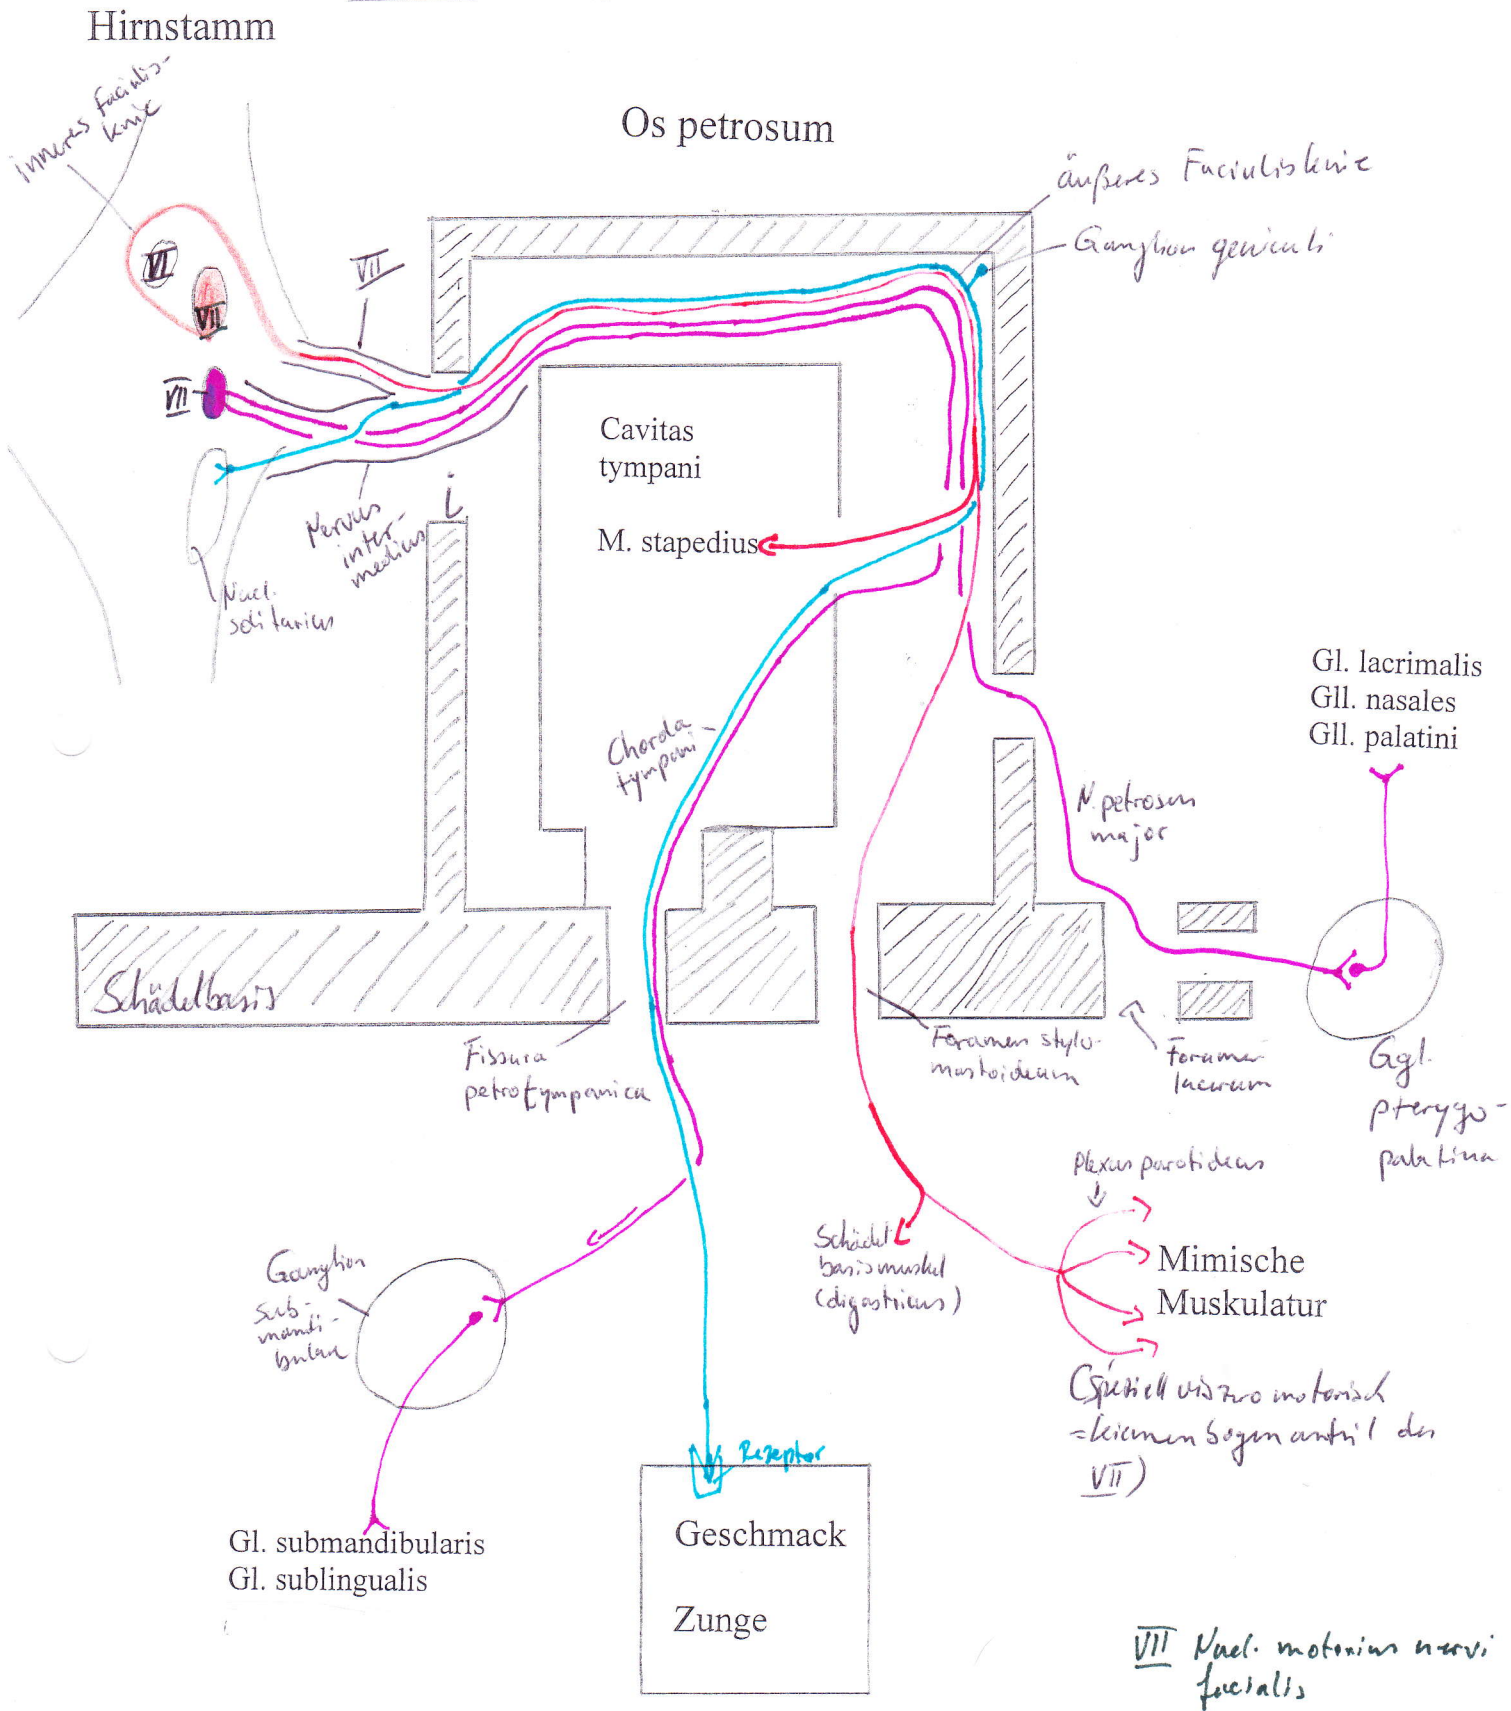 Hirnstamm
inneres Facialis-
knie
Os petrosum
äußeres Facialisknie
Ganglion geniculi
VI
VII
VII
VII
Cavitas
tympani
M. stapedius
Nervus
inter-
medius
i
Nucl.
solitarius
Gl. lacrimalis
Gll. nasales
Gll. palatini
Chorda
tympani
N. petrosus
major
Schädelbasis
Fissura
petrotympanica
Foramen stylo-
mastoideum
Foramen
lacerum
Ggl.
pterygo-
palatina
Plexus parotideus
Schädel
basismuskel
(digastricus)
Mimische
Muskulatur
(speziell viszeromotorisch
=kiemenbogenanteil des
VII)
Ganglion
sub-
mandi-
bulare
Rezeptor
Geschmack
Zunge
Gl. submandibularis
Gl. sublingualis
VII Nucl. motorius nervi
facialis